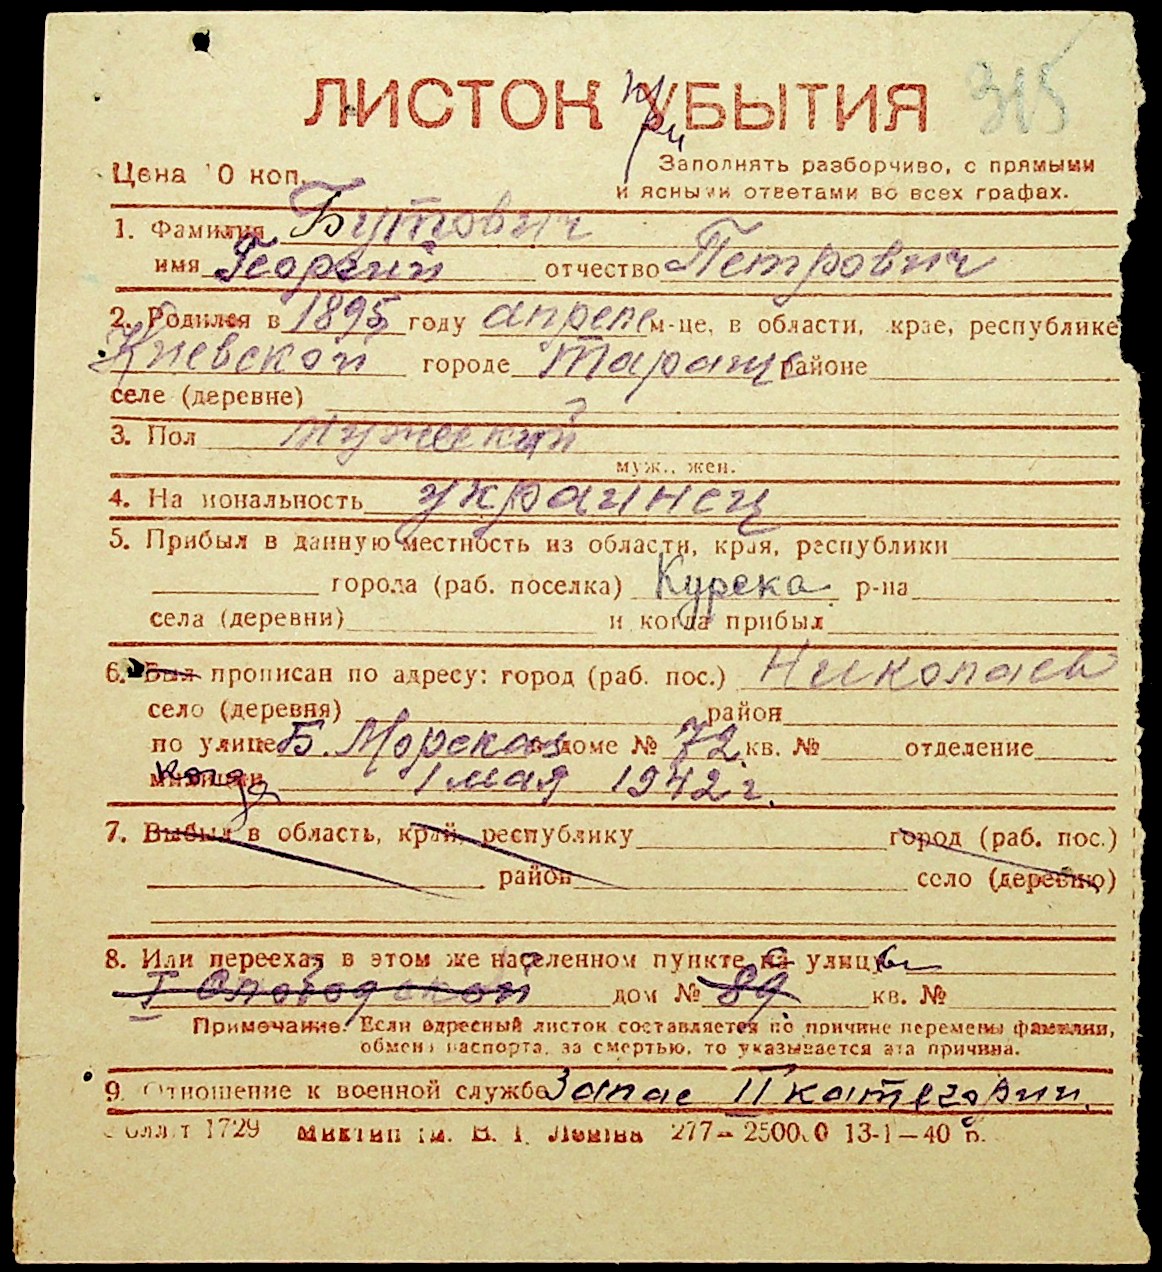 ЛИСТОК УБЫТИЯ
При
315
Цена 10 коп.
Заполнять разборчиво, с прямыми
и ясными ответами во всех графах.
1. Фамилия Бутович
имя Георгий отчество Петрович
2. Родился в 1895 году апреле м-це, в области, крае, республике
Киевской городе Тараще районе
селе (деревне)
3. Пол мужеский
муж., жен.
4. Национальность украинец
5. Прибыл в данную местность из области, края, республики
города (раб. поселка) Курска р-на
села (деревни) и когда прибыл
6. Был прописан по адресу: город (раб. пос.) Николаев
село (деревня) район
по улице Б. Морская в доме № 72 кв. № отделение
милиции когда 1 мая 1942 г.
7. Выбыл в область, край, республику город (раб. пос.)
район село (деревню)
8. Или переехал в этом же населенном пункте на улицу
I Слободской дом № 89 кв. №
Примечание. Если адресный листок составляется по причине перемены фамилии,
обмена паспорта, за смертью, то указывается эта причина.
9. Отношение к военной службе Запас II категории.
1729 им. В. І. Леніна 277—25000 13-1—40 р.